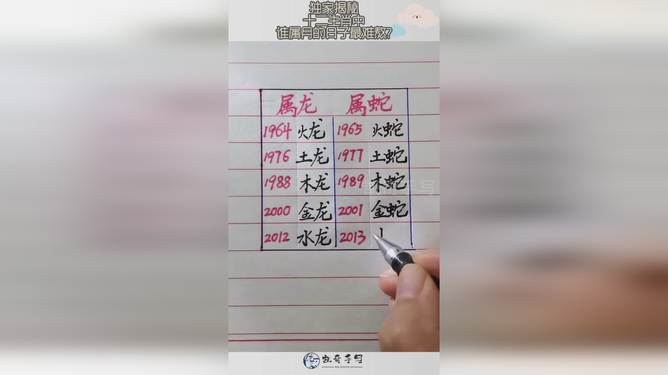 独家揭秘
十二生肖中
谁属月的日子最难熬?
属龙 属蛇
1964 火龙 1965 火蛇
1976 土龙 1977 土蛇
1988 木龙 1989 木蛇
2000 金龙 2001 金蛇
2012 水龙 2013